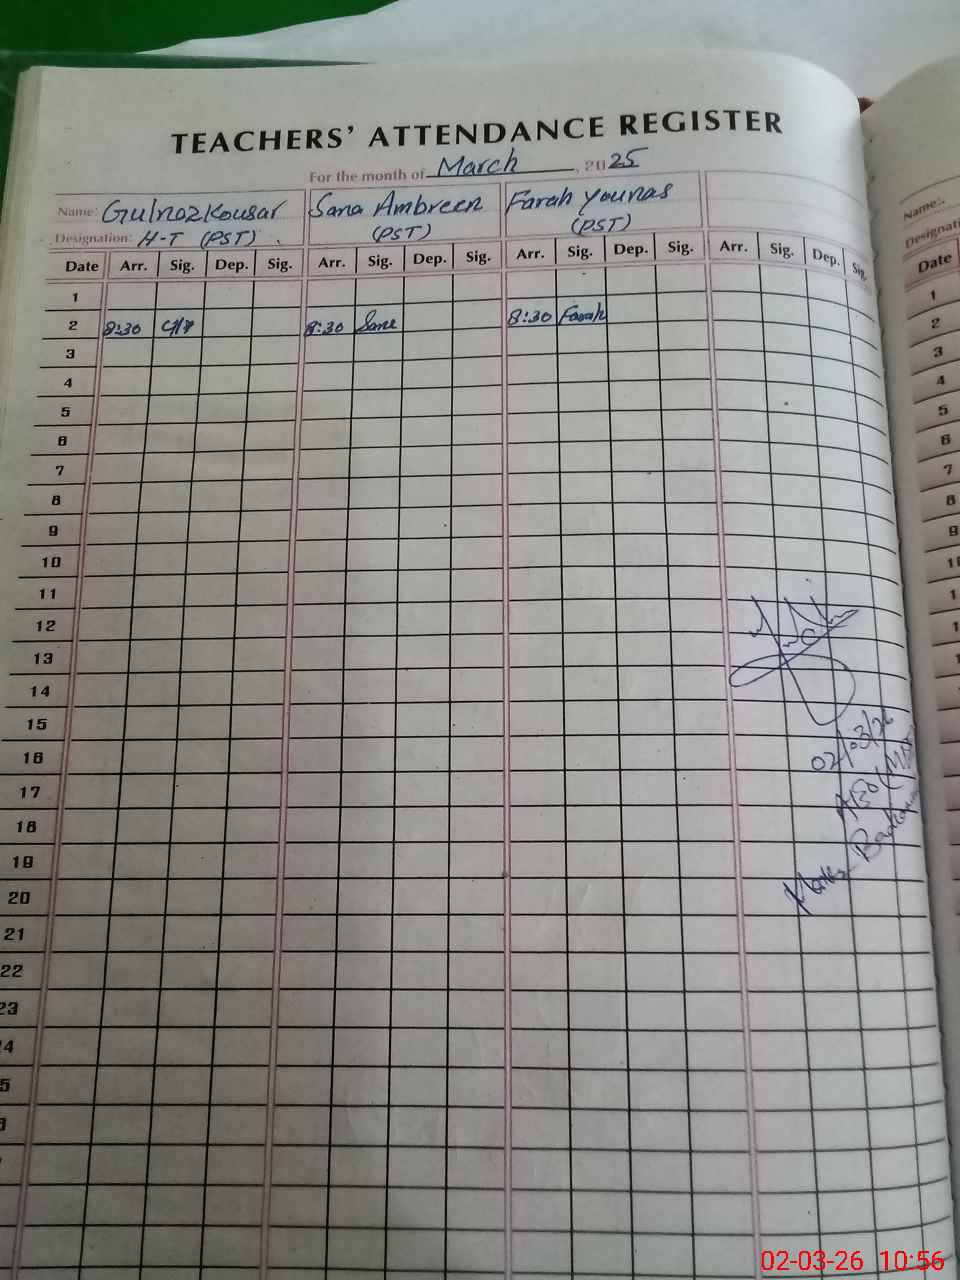 TEACHERS' ATTENDANCE REGISTER
For the month of March, 2025
Name: Gulnaz Kousar Sana Ambreen Farah Younas
Designation: H-T (PST) (PST) (PST)
Date Arr. Sig. Dep. Sig. Arr. Sig. Dep. Sig. Arr. Sig. Dep. Sig. Arr. Sig. Dep. Sig.
1
2 8:30 8:30 Sana 8:30 Farah
3
4
5
6
7
8
9
10
11
12
13
14
15
16
17
18
19
20
21
22
23
4
5
02/03/26
Name:.
Designati
Date
1
2
3
4
5
6
7
8
9
02-03-26 10:56